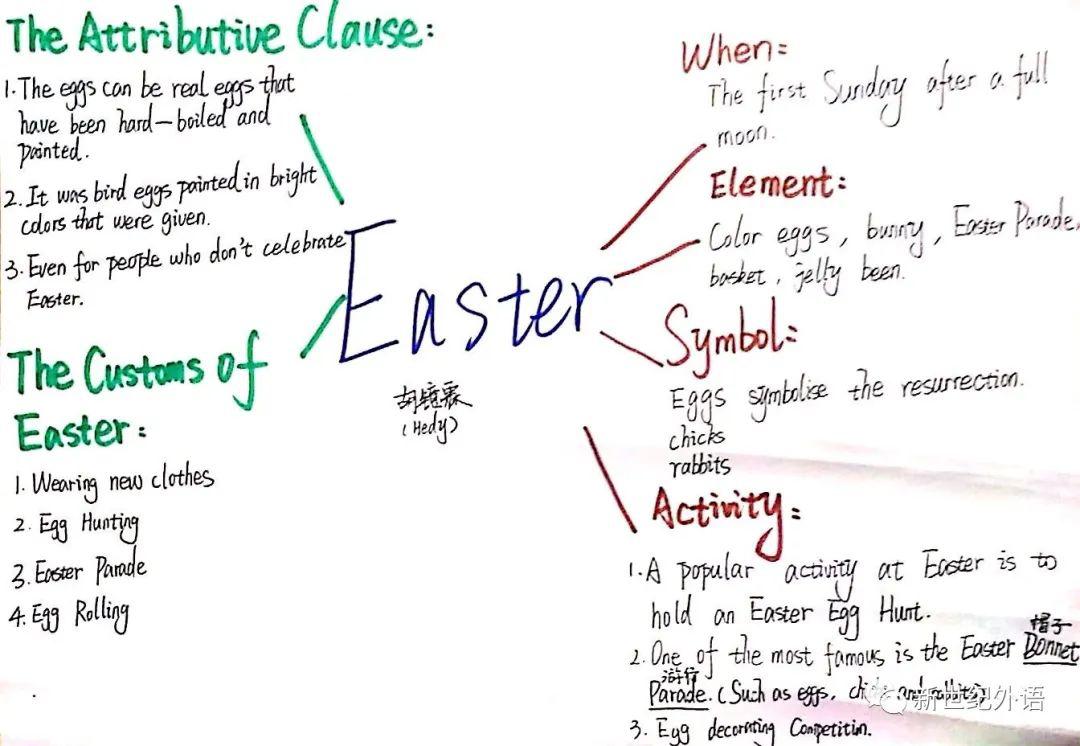 The Attributive Clause:
1. The eggs can be real eggs that
have been hard-boiled and
painted.
2. It was bird eggs painted in bright
colors that were given.
3. Even for people who don't celebrate
Easter.
The Customs of
Easter:
1. Wearing new clothes
2. Egg Hunting
3. Easter Parade
4. Egg Rolling
Easter
胡镜霖
(Hedy)
When:
The first Sunday after a full
moon.
Element:
Color eggs, bunny, Easter Parade,
basket, jelly been.
Symbol:
Eggs symbolise the resurrection.
chicks
rabbits
Activity:
1. A popular activity at Easter is to
hold an Easter Egg Hunt.
帽子
2. One of the most famous is the Easter Bonnet
游行
Parade. (Such as eggs, and rabbits)
新世纪外语
3. Egg decorating Competition.